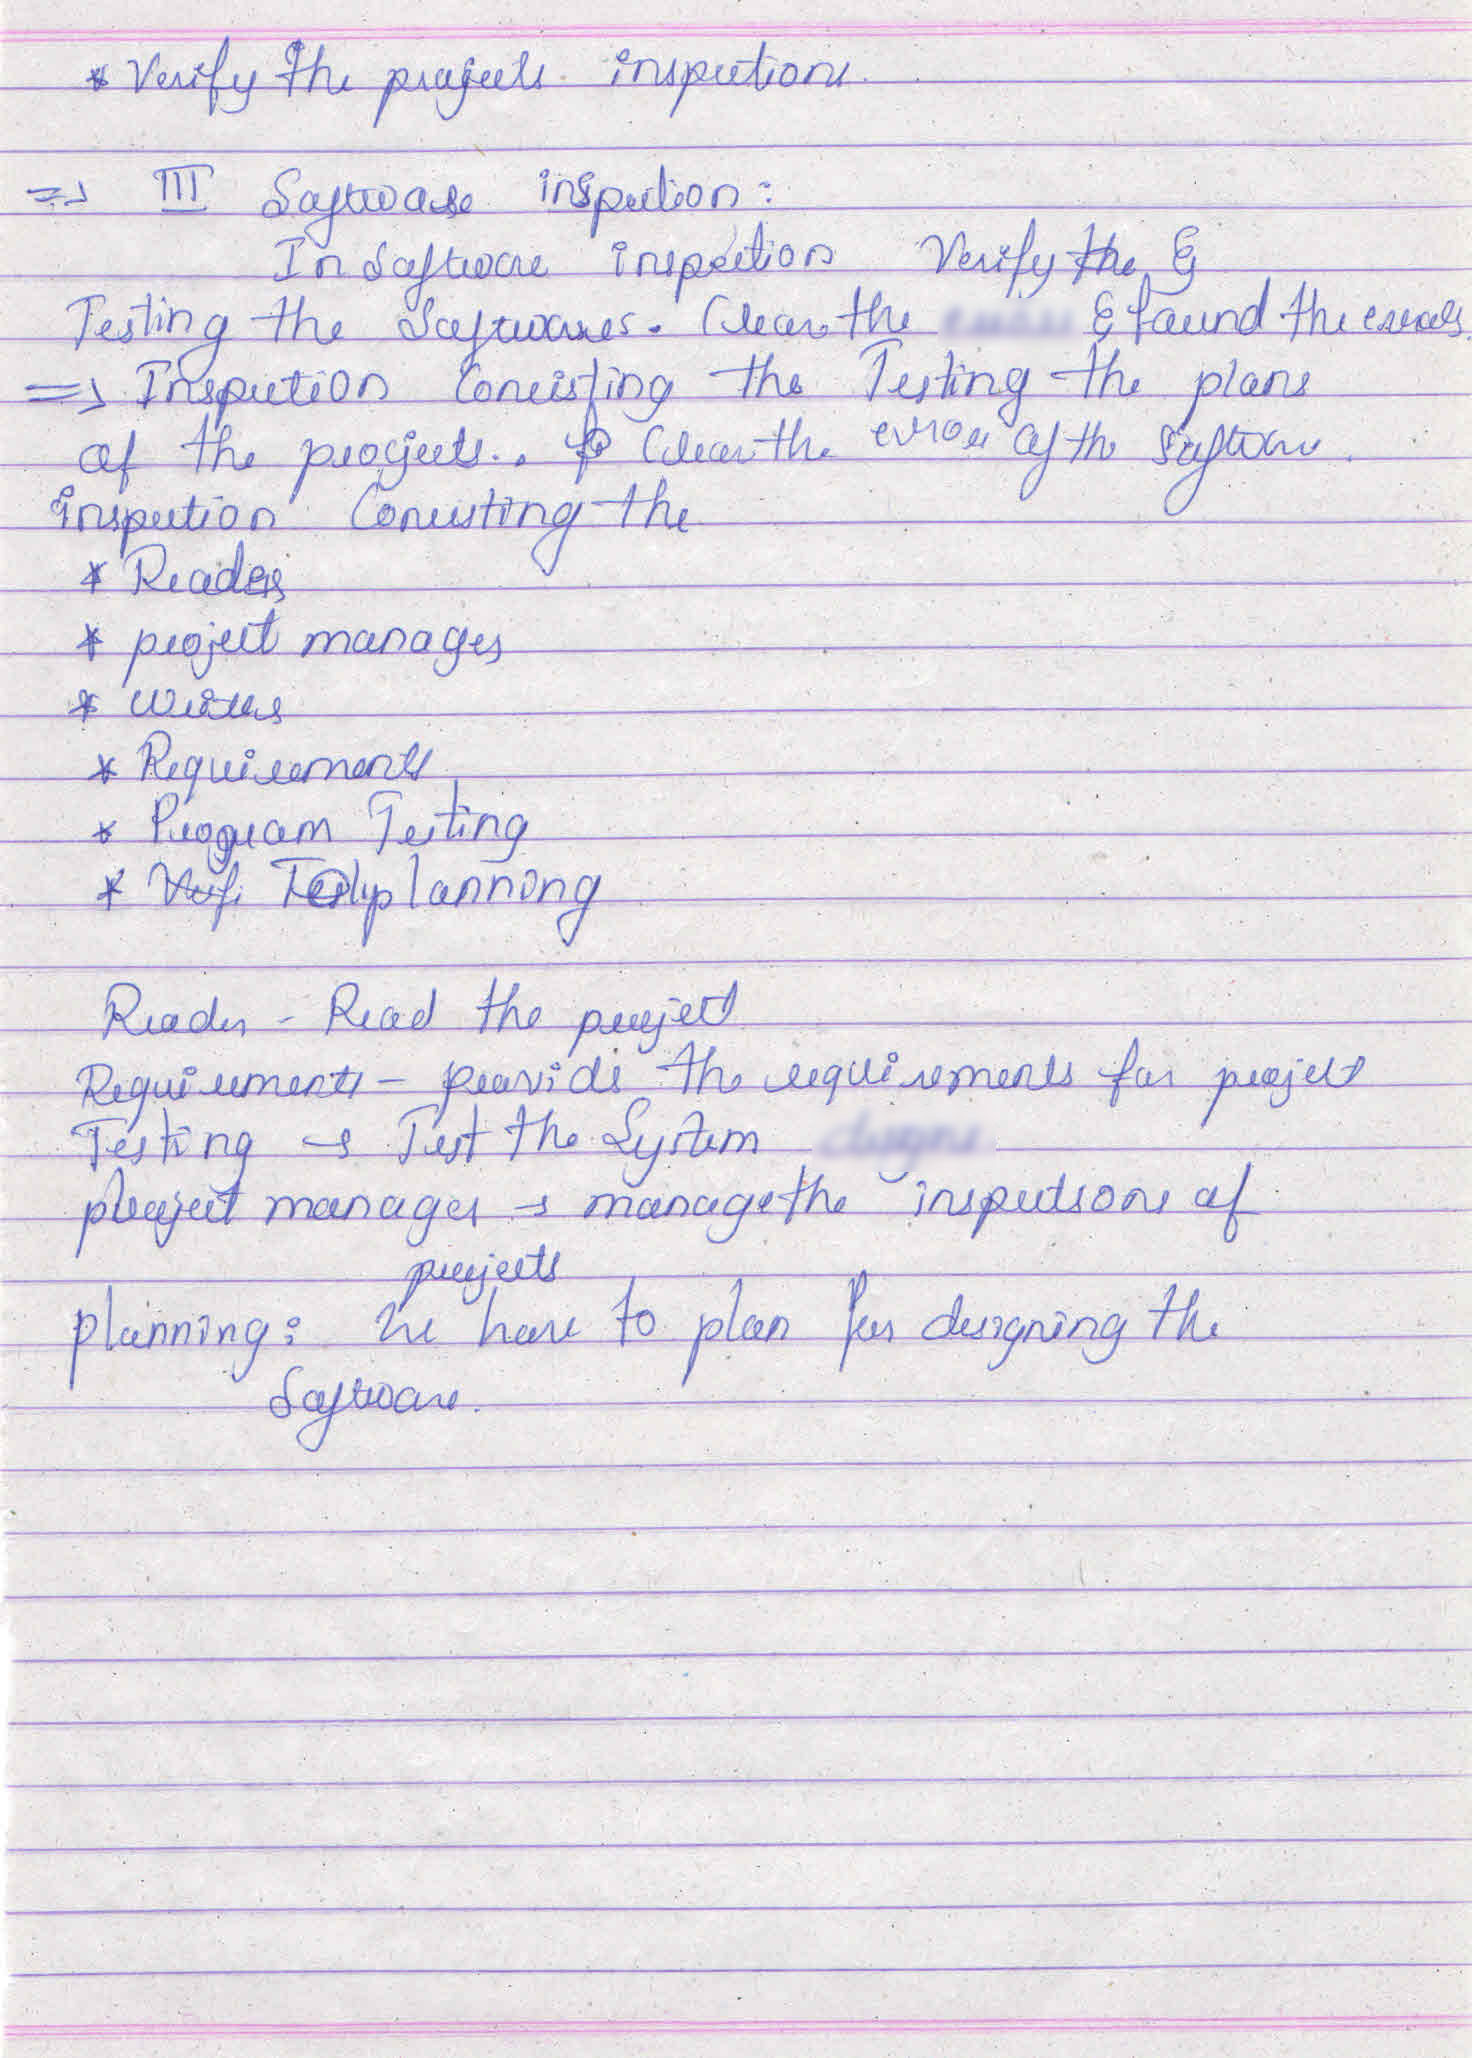 * Verify the projects inspections.
=> III Software inspection:
In Software inspection Verify the &
Testing the Softwares. Clear the & found the errors.
=> Inspection Consisting the Testing the plans
of the projects.. Clear the error of the Software.
inspection Consisting the
* Readers
* project manages
* Writers
* Requirements
* Program Testing
* planning
Reader - Read the project
Requirements - provide the requirements for project
Testing -> Test the System
project manager -> manage the inspections of
projects
planning: We have to plan for designing the
Software.